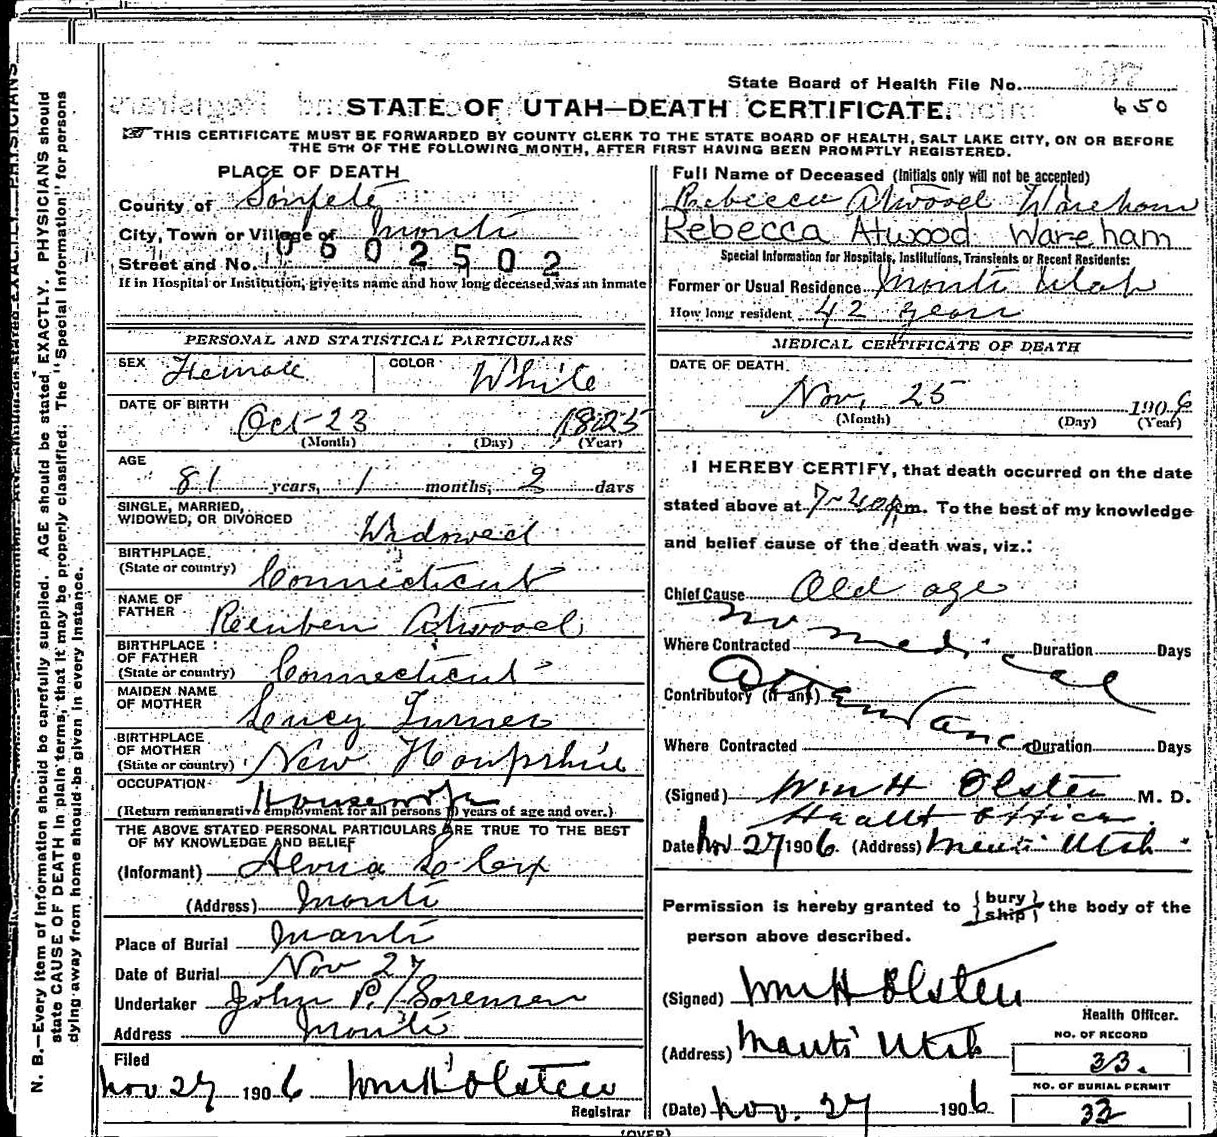 State Board of Health File No.
650
STATE OF UTAH—DEATH CERTIFICATE.
THIS CERTIFICATE MUST BE FORWARDED BY COUNTY CLERK TO THE STATE BOARD OF HEALTH, SALT LAKE CITY, ON OR BEFORE
THE 5TH OF THE FOLLOWING MONTH, AFTER FIRST HAVING BEEN PROMPTLY REGISTERED.
PLACE OF DEATH
County of Sanpete
City, Town or Village of Manti
0602502
Street and No.
If in Hospital or Institution, give its name and how long deceased was an inmate
PERSONAL AND STATISTICAL PARTICULARS
SEX Female COLOR White
DATE OF BIRTH Oct 23 1825
(Month) (Day) (Year)
AGE 81 years, 1 months, 2 days
SINGLE, MARRIED,
WIDOWED, OR DIVORCED Widowed
BIRTHPLACE
(State or country) Connecticut
NAME OF
FATHER Reuben Atwood
BIRTHPLACE
OF FATHER
(State or country) Connecticut
MAIDEN NAME
OF MOTHER Lucy Turner
BIRTHPLACE
OF MOTHER
(State or country) New Hampshire
OCCUPATION Housework
(Return remunerative employment for all persons 10 years of age and over.)
THE ABOVE STATED PERSONAL PARTICULARS ARE TRUE TO THE BEST
OF MY KNOWLEDGE AND BELIEF
(Informant)
(Address) Manti
Place of Burial Manti
Date of Burial Nov 27
Undertaker John P. Sorensen
Address Manti
Filed
Nov 27 1906 Wm H Olsten
Registrar
Full Name of Deceased (Initials only will not be accepted)
Rebecca Atwood Wareham
Rebecca Atwood Wareham
Special Information for Hospitals, Institutions, Transients or Recent Residents:
Former or Usual Residence Manti Utah
How long resident 42 years
MEDICAL CERTIFICATE OF DEATH
DATE OF DEATH
Nov. 25 1906
(Month) (Day) (Year)
I HEREBY CERTIFY, that death occurred on the date
stated above at 7-20 p.m. To the best of my knowledge
and belief cause of the death was, viz.:
Chief Cause Old age
no medical
Where Contracted Duration Days
Attendance
Contributory (if any)
Where Contracted Duration Days
(Signed) Wm H Olsten M. D.
Health Officer.
Date Nov 27 1906 (Address) Manti Utah
Permission is hereby granted to {bury ship} the body of the
person above described.
(Signed) Wm H Olsten
Health Officer.
(Address) Manti Utah
NO. OF RECORD
33.
NO. OF BURIAL PERMIT
32
(Date) Nov. 27 1906
(OVER)
N. B.—Every item of information should be carefully supplied. AGE should be stated EXACTLY. PHYSICIANS should
state CAUSE OF DEATH in plain terms, that it may be properly classified. The "Special Information" for persons
dying away from home should be given in every instance.